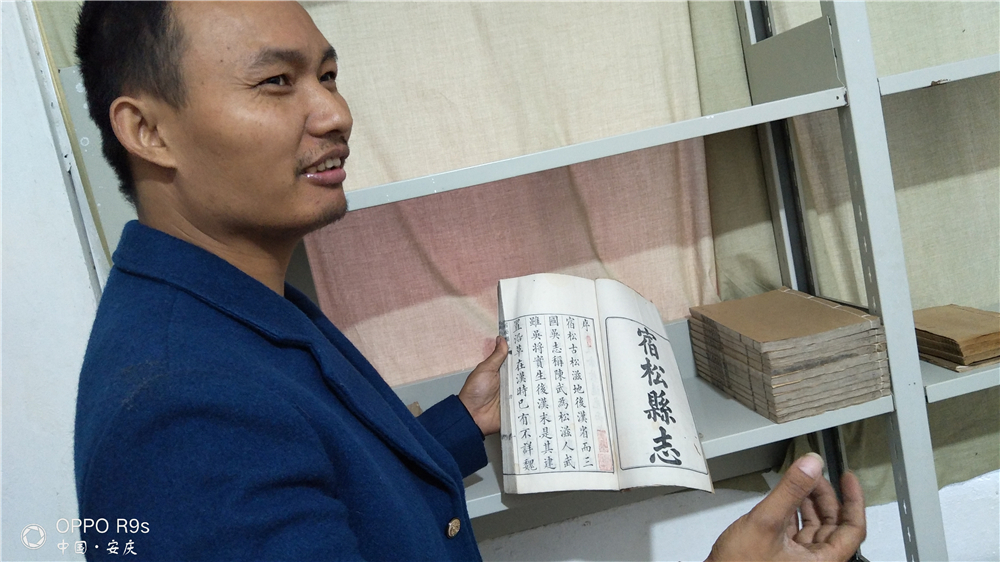 宿松縣志
序
宿松古松滋地後漢省而三
國吳志稱陳武為松滋人武
雖吳將實生後漢末是其建
置沿革在漢時已有不詳魏
OPPO R9s
中国·安庆